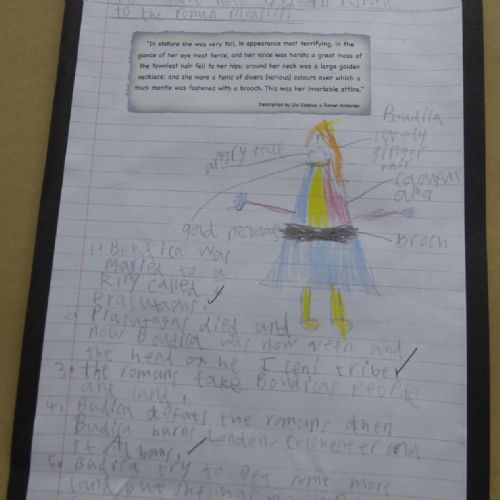 to the roman invasion
"In stature she was very tall, in appearance most terrifying, in the
glance of her eye most fierce, and her voice was harsh; a great mass of
the tawniest hair fell to her hips; around her neck was a large golden
necklace; and she wore a tunic of divers (various) colours over which a
thick mantle was fastened with a brooch. This was her invariable attire."
Description by Dio Cassius, a Roman historian
Boudica
lovely
ginger
hair
angry face
gold necklace
Broch
1. Boudica was
maried to a
king called
Prasutagus.
2. Prasutagas died and
now Boudica was now qeen and
the head of he Iceni tribe
3. the romans take Boudicas people
and land.
4. Budica defats the romans then
Budica burns London, Colchester and
st Albans.
5. Budica try to get some more
land but she had